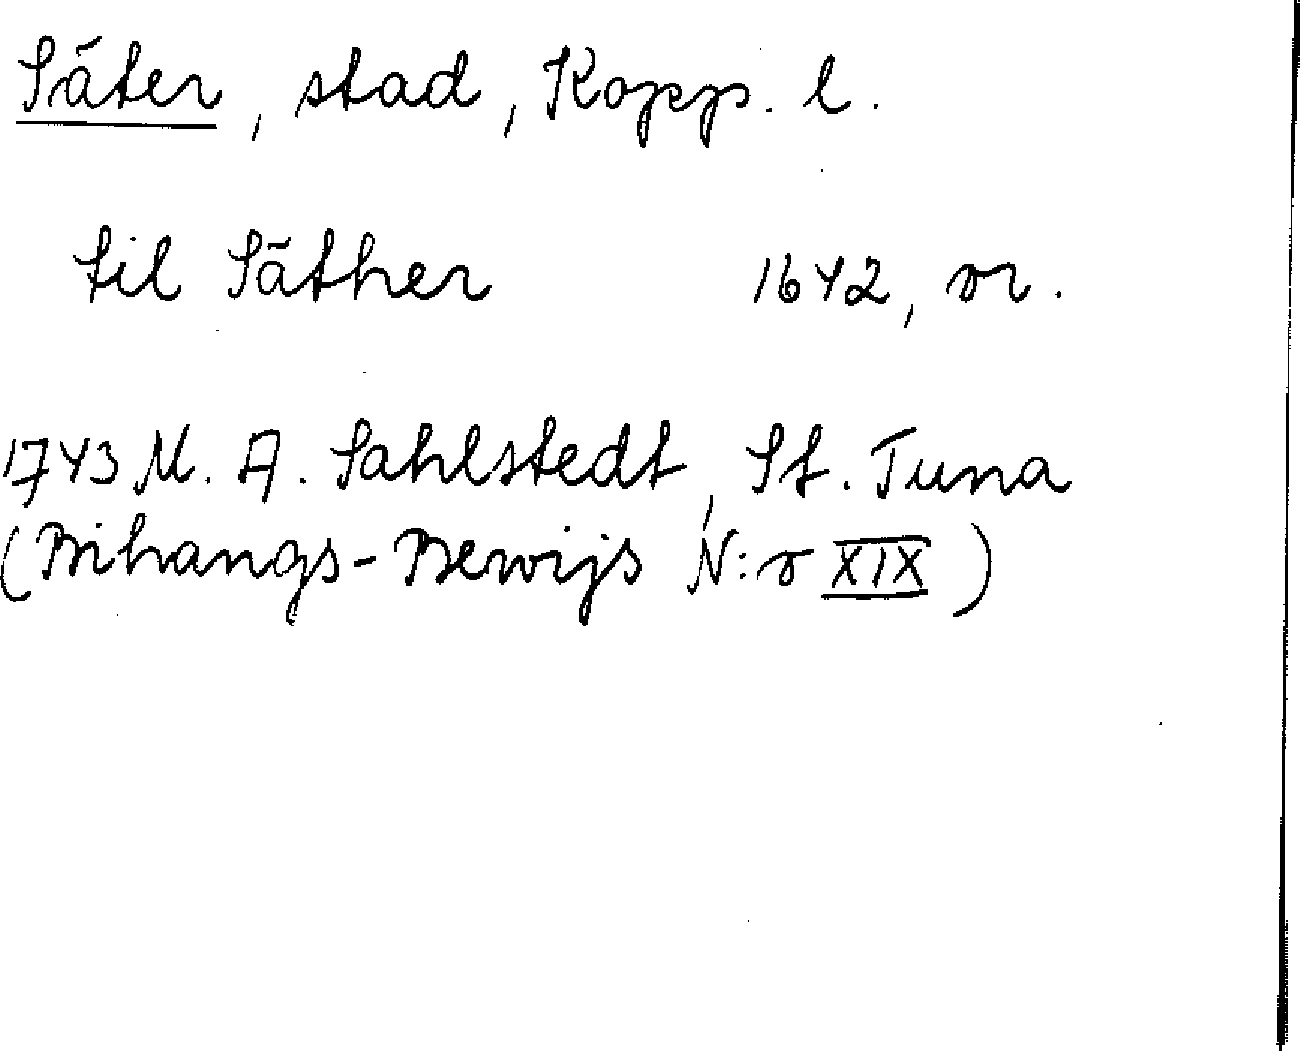 Säter, stad, Kopp. l.
til Säther 1642, or.
1743 M. A. Sahlstedt, St. Tuna
(Bihangs-Bewijs N:r XIX)